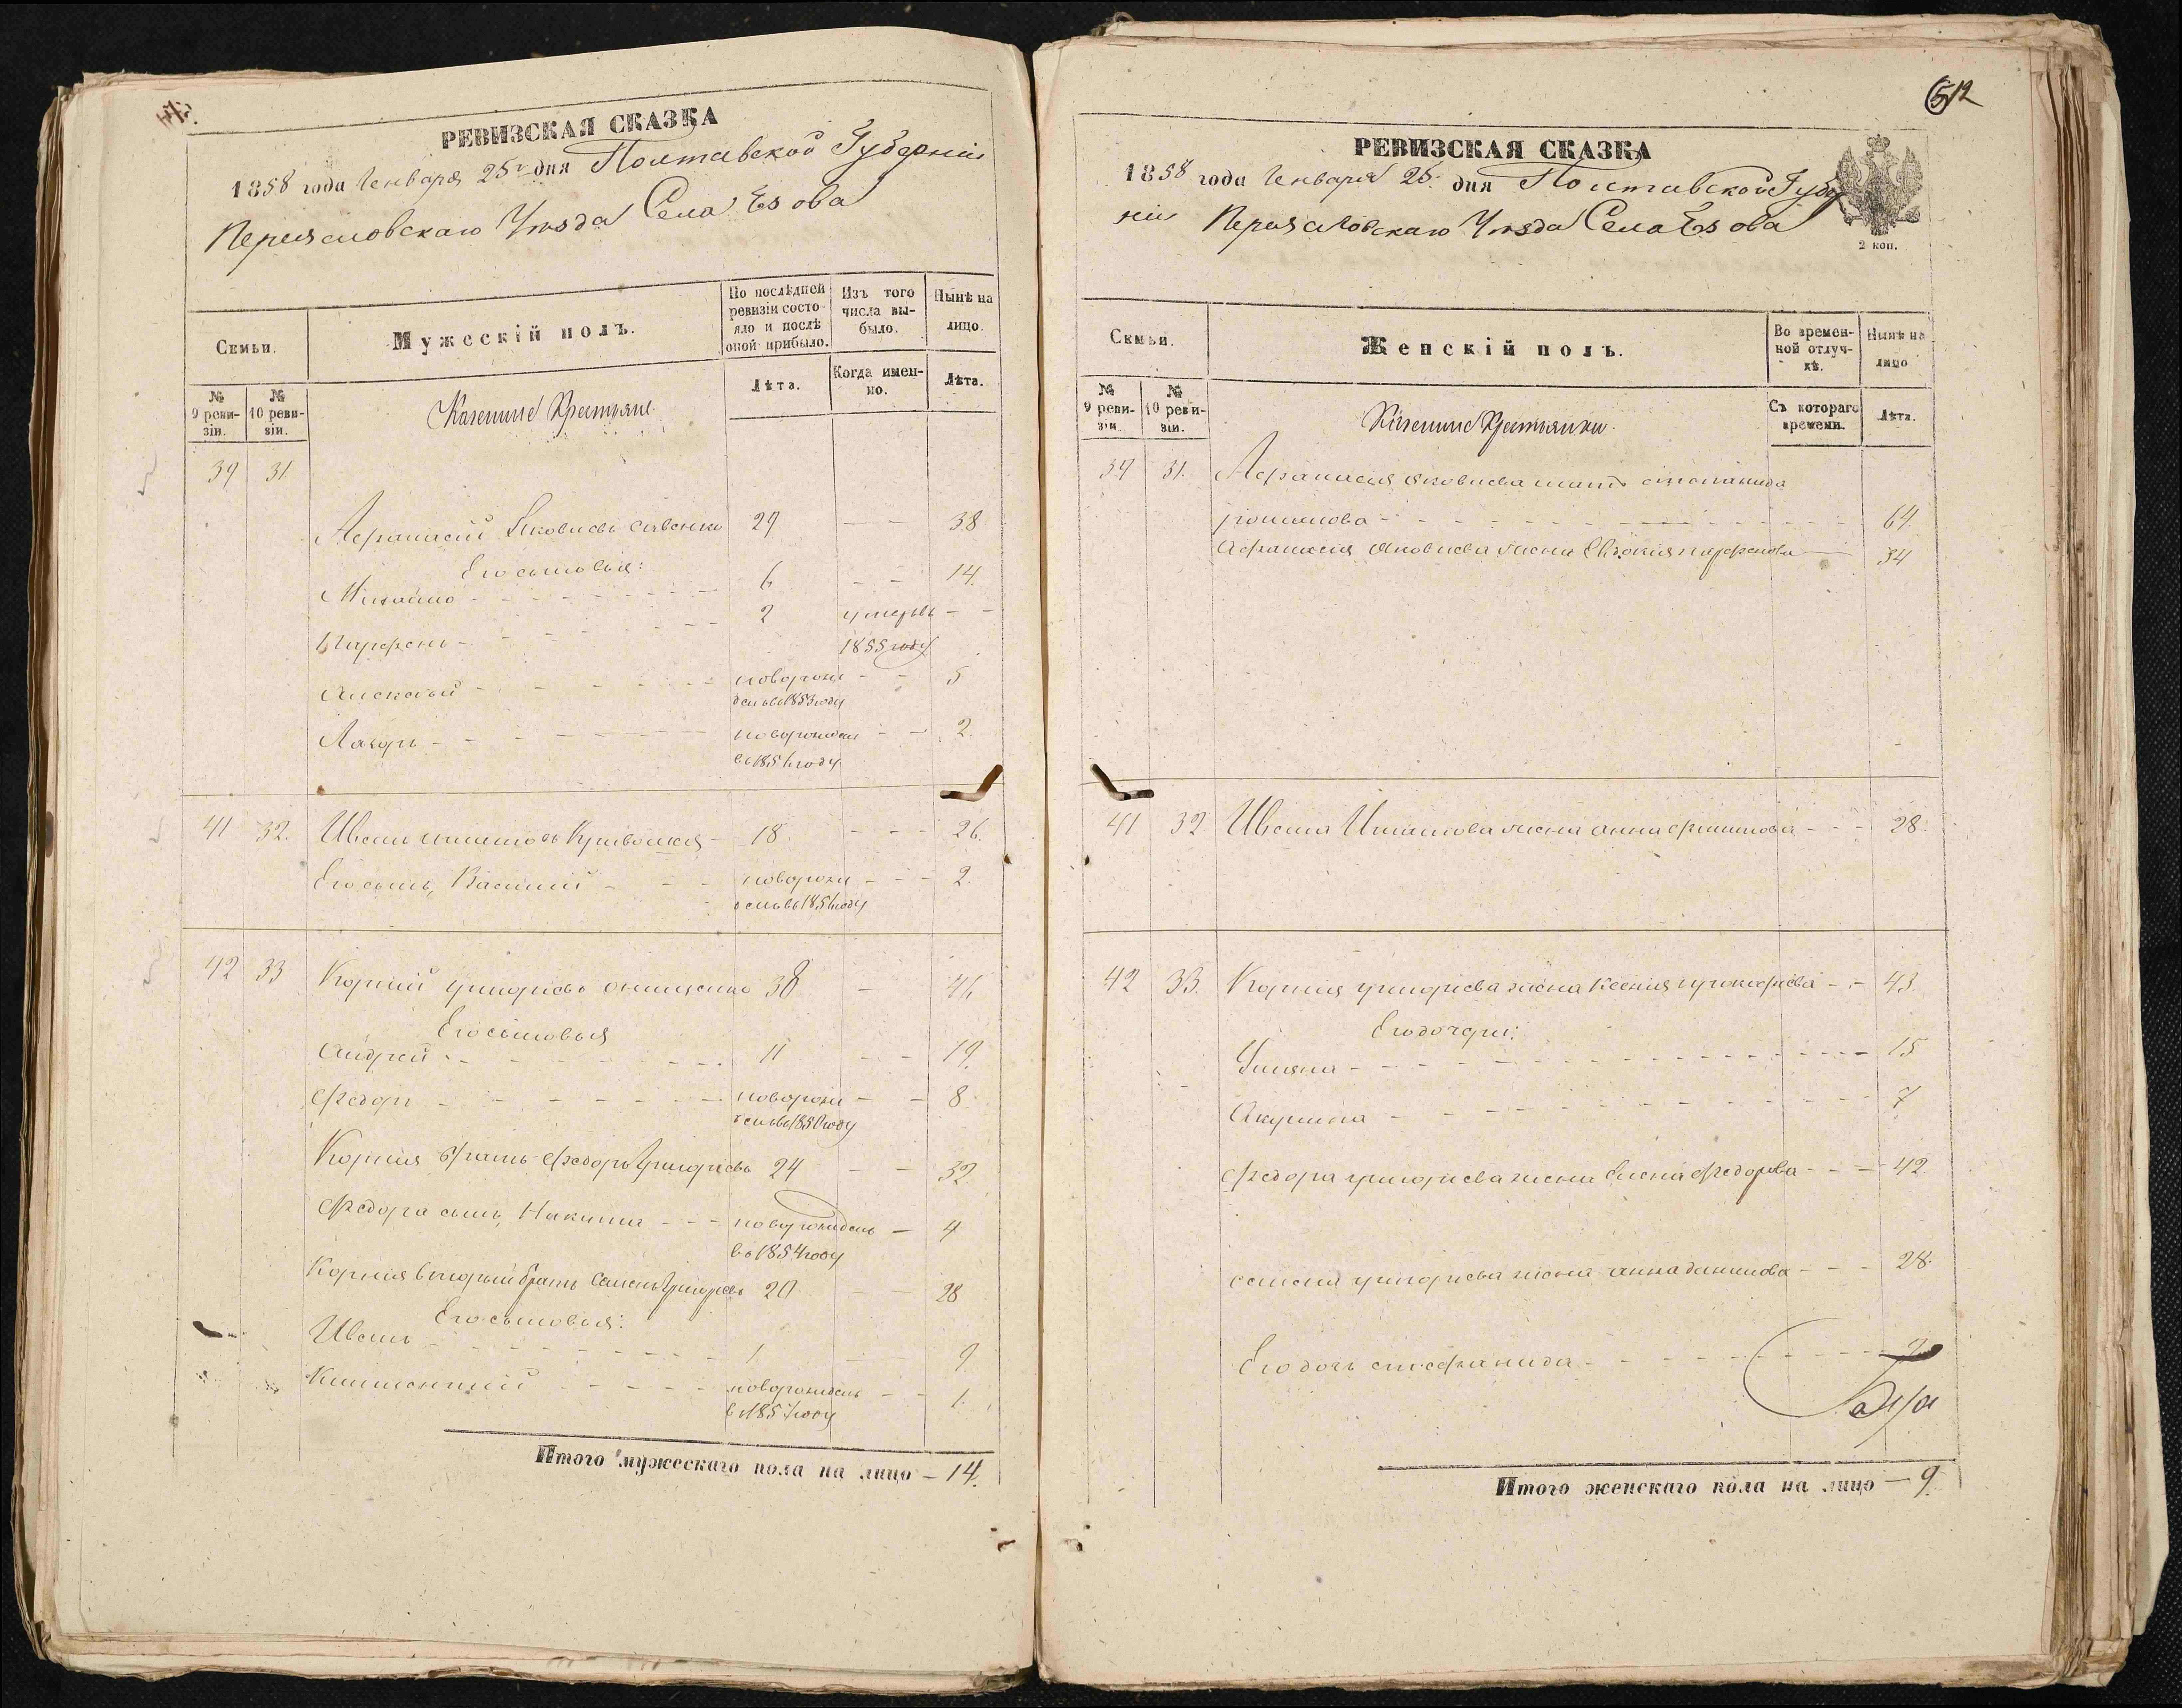 РЕВИЗСКАЯ СКАЗКА
1858 года Генваря 25го дня Полтавской Губерніи
Переясловскаго Уѣзда Села
Семьи.
Мужескій полъ.
По послѣдней ревизіи состояло и послѣ оной прибыло.
Изъ того числа выбыло.
Нынѣ на лицо.
№ 9 ревизіи.
№ 10 ревизіи.
Казенные Крестьяне
Лѣта.
Когда именно.
Лѣта.
39 31.
Афанасій Яковлевъ Савенко 29 — — 38
Его сыновья:
Михайло - - - 6 — — 14.
Парфенъ - - - 2 умеръ въ — —
1855 году
Алексѣй - - - новорож — — 5
денъ въ 1853 году
Лазарь - - - новорожден — — 2.
въ 1856 году
41 32. Иванъ Игнатовъ 18. - - - 26.
Его сынъ, Василий - - - новорож - - - 2.
денъ въ 1856 году
42 33 Корнѣй Григорьевъ Онищенко 38 — 46
Его сыновья
Андрей - - - 11 — — 19.
Федоръ - - - новорож — — 8
денъ въ 1850 году
Корнѣя братъ Федоръ Григорьевъ 24 — — 32.
Федора сынъ, Никита - - - новорожденъ — 4
въ 1854 году
Корнѣя вторый братъ Семенъ Григорьевъ 20 — — 28
Его сыновья:
Иванъ - - - 1 — 9
Климентій - - - новорожденъ — — 1.
въ 1857 году
Итого мужескаго пола на лицо — 14.
512
РЕВИЗСКАЯ СКАЗКА
1858 года Генваря 25. дня Полтавской Губер
ніи Переясловскаго Уѣзда Села
2 коп.
Семьи.
Женскій полъ.
Во временной отлучкѣ.
Нынѣ на лицо
№ 9 ревизіи.
№ 10 ревизіи.
Казенные Крестьянки.
Съ котораго времени.
Лѣта.
39 31. Афанасія Яковлева мать Степанида
Романова - - - 64
Афанасія Яковлева жена Евдокия Парфенова — 34
41 32 Ивана Игнатова жена Анна Филипова - - - 28.
42 33. Корнѣя Григорьева жена Ксения Прокофіева - - 43.
Его дочери:
Ульяна - - - 15
Акулина - - - 7
Федора Григорьева жена Елена Федорова - - - 42
Семена Григорьева жена Анна Данилова - - - 28.
Его дочь Стефанида - - - 2
Итого женскаго пола на лицо — 9.